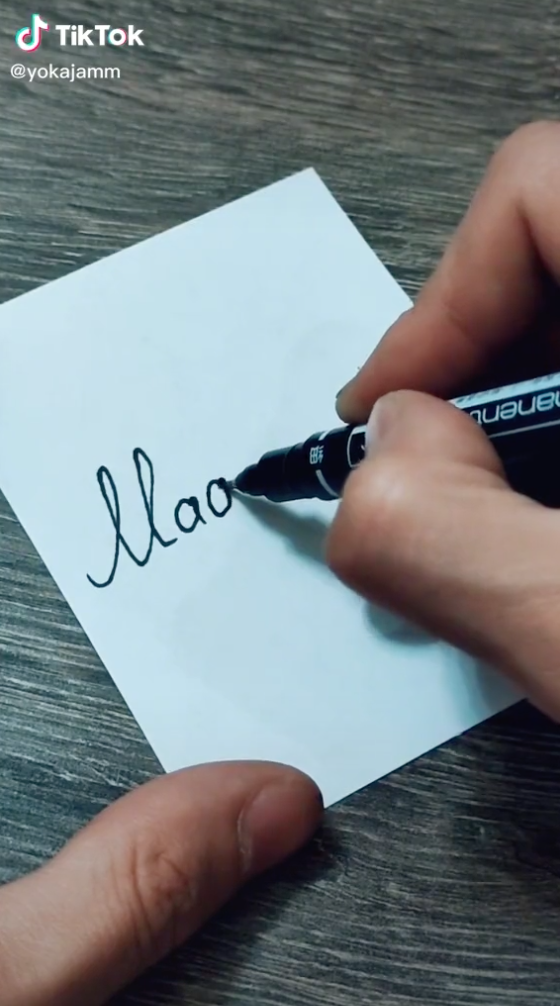 TikTok
@yokajamm
Mao
manent